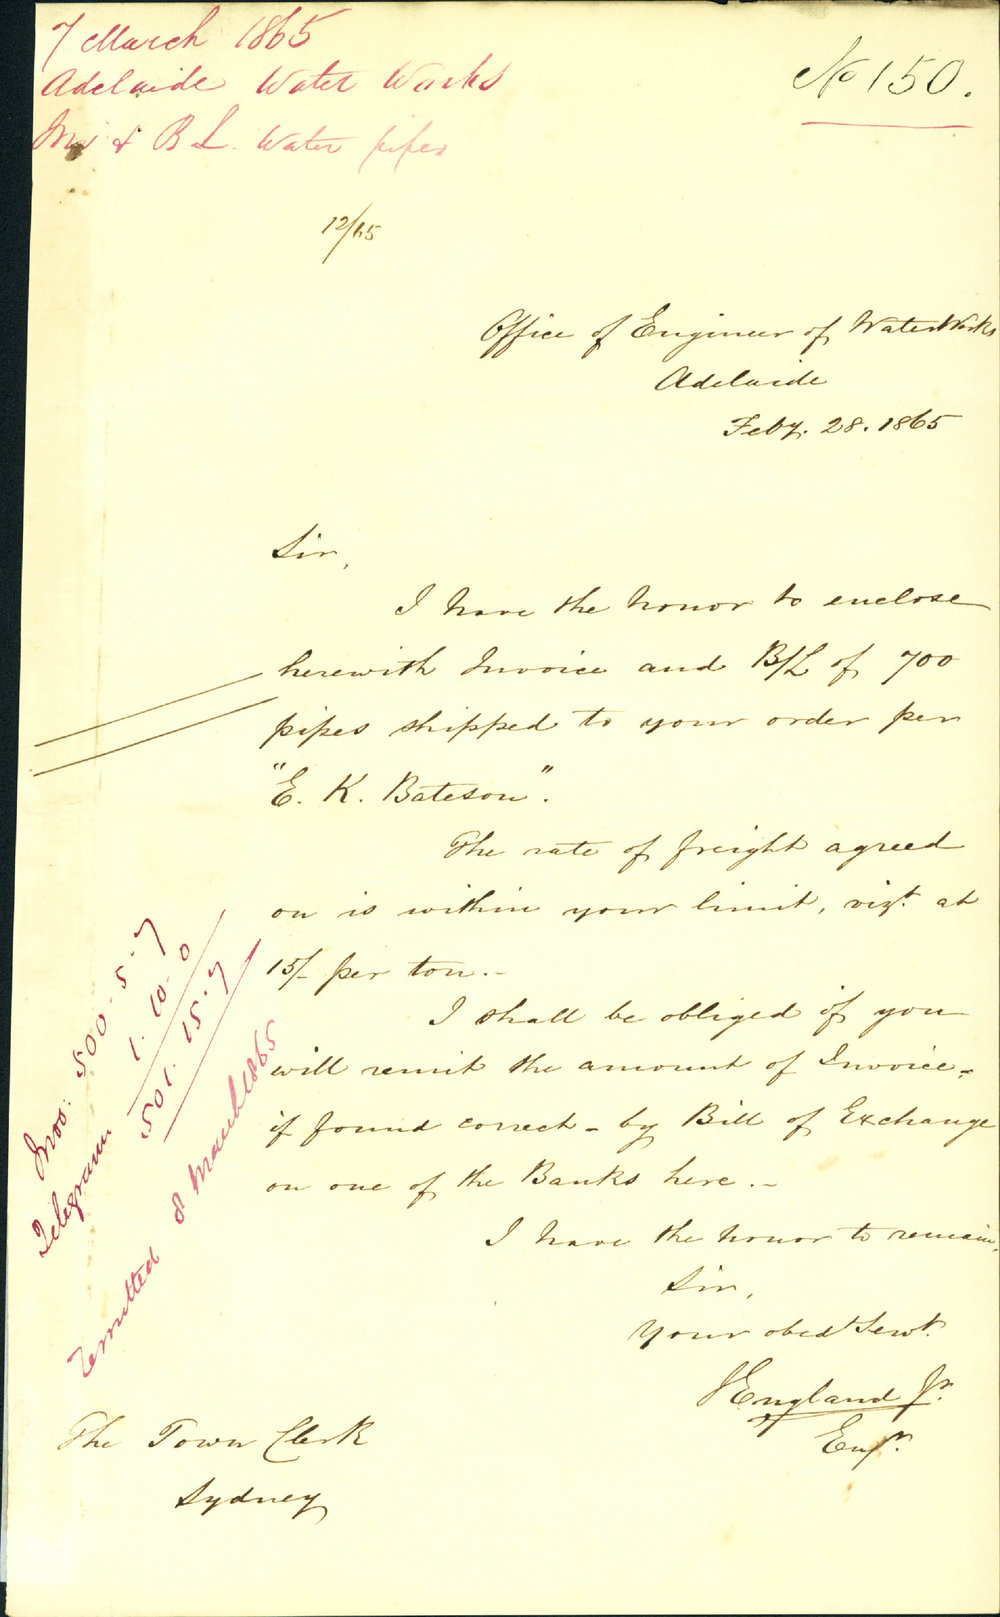 7 March 1865
Adelaide Water Works
Inv & B L. Water pipes
No 150.
12/65
Office of Engineer of Water Works
Adelaide
Feby. 28. 1865
Sir,
I have the honor to enclose
herewith Invoice and B/L of 700
pipes shipped to your order per
"E. K. Bateson".
The rate of freight agreed
on is within your limit, vizt. at
15/- per ton.-
I shall be obliged if you
will remit the amount of Invoice -
if found correct - by Bill of Exchange
on one of the Banks here.-
I have the honor to remain,
Sir,
Your obedt Servt.
England Jr.
Engr.
The Town Clerk
Sydney
Invo: 500.5.7
Telegram 1.10.0
501.15.7
remitted 8 March 1865